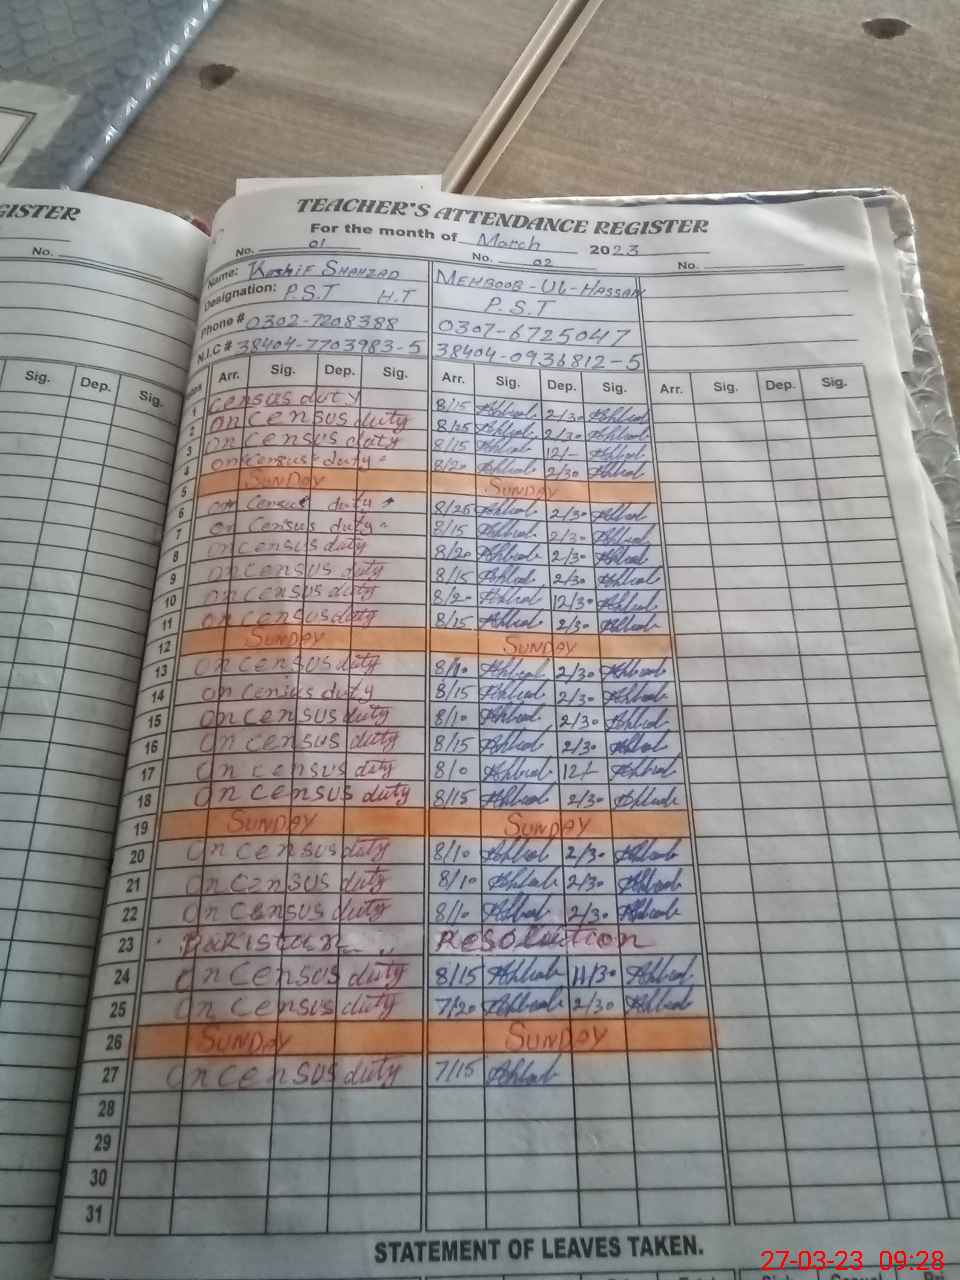 GISTER
No.
Sig. Dep. Sig.
TEACHER'S ATTENDANCE REGISTER
For the month of March 2023
No. 01 No. 02 No.
Name: Kashif Shahzad MEHBOOB-UL-HASSAN
Designation: P.S.T H.T P.S.T
Phone # 0302-7208388 0307-6725047
N.I.C # 38404-7703983-5 38404-0936812-5
Arr. Sig. Dep. Sig. Arr. Sig. Dep. Sig. Arr. Sig. Dep. Sig.
1 census duty 8/15 2/30
2 on census duty 8/25 2/30
3 on census duty 8/15 12/-
4 on census duty 8/20 2/30
5 SUNDAY SUNDAY
6 on census duty 8/25 2/30
7 on census duty 8/15 2/30
8 on census duty 8/20 2/30
9 on census duty 8/15 2/30
10 on census duty 8/20 12/30
11 on census duty 8/15 2/30
12 SUNDAY SUNDAY
13 on census duty 8/10 2/30
14 on census duty 8/15 2/30
15 on census duty 8/10 2/30
16 on census duty 8/15 2/30
17 on census duty 8/0 12/-
18 on census duty 8/15 2/30
19 SUNDAY SUNDAY
20 on census duty 8/10 2/30
21 on census duty 8/10 2/30
22 on census duty 8/10 2/30
23 Pakistan Resolution
24 on census duty 8/15 11/30
25 on census duty 7/20 2/30
26 SUNDAY SUNDAY
27 on census duty 7/15
28
29
30
31
STATEMENT OF LEAVES TAKEN.
27-03-23 09:28